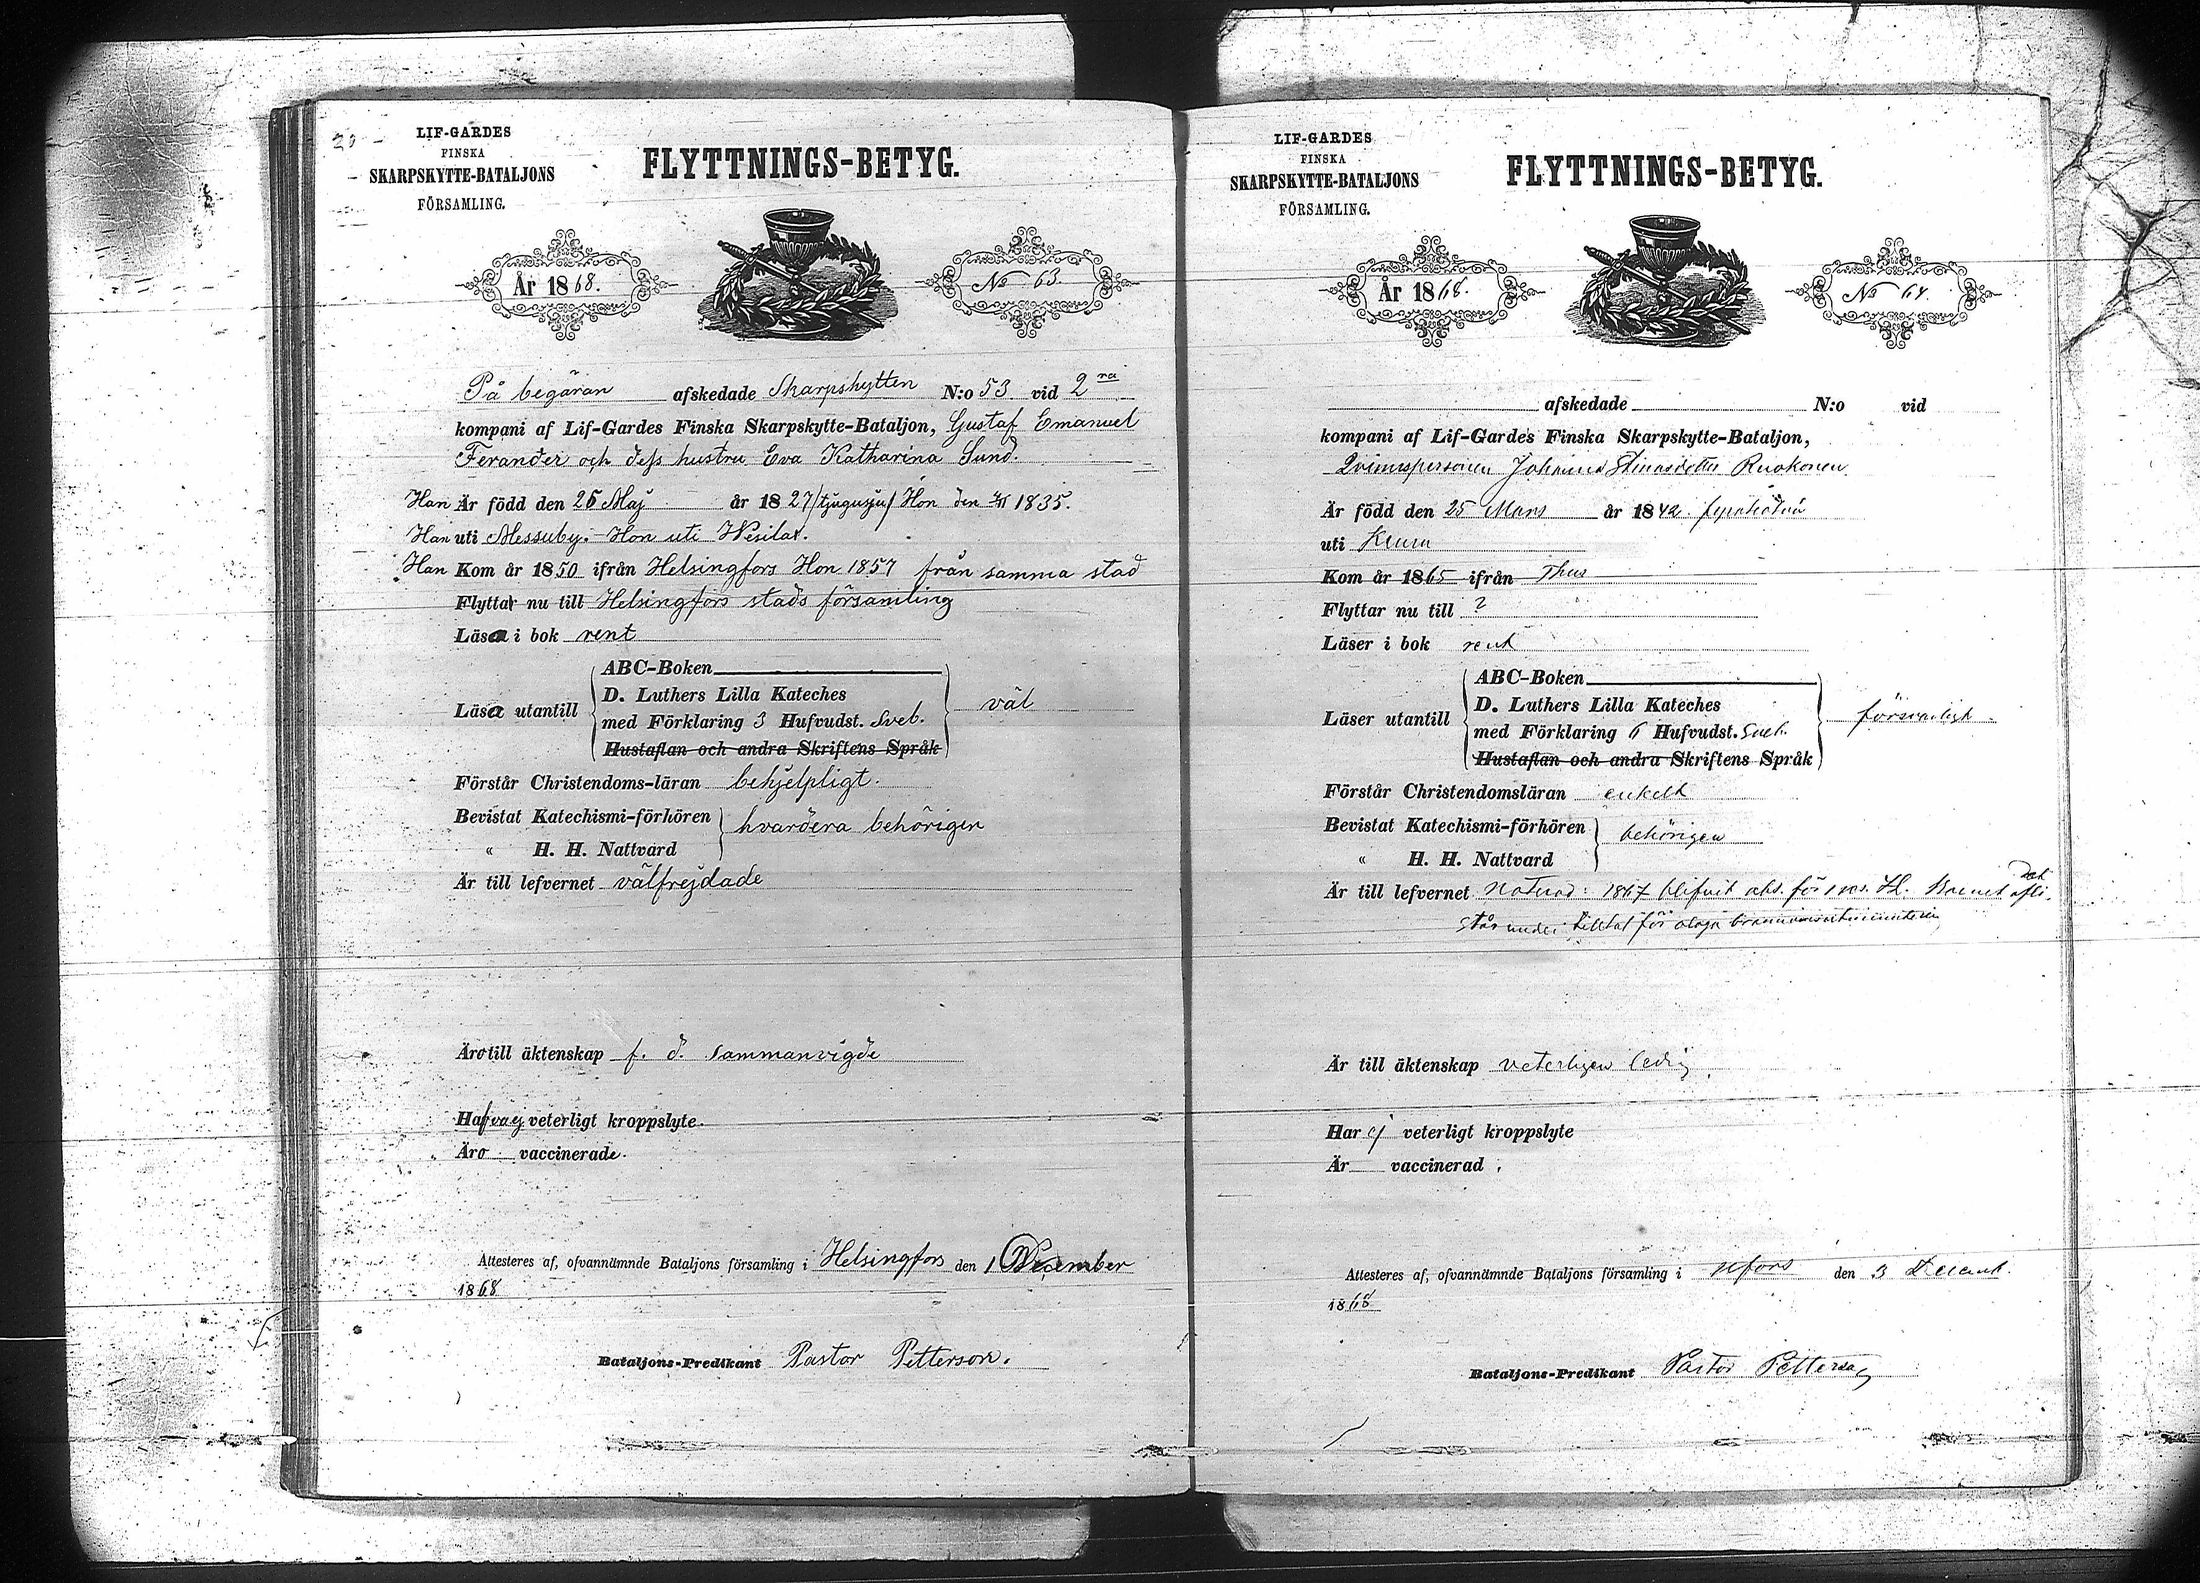 20
LIF-GARDES
FINSKA
SKARPSKYTTE-BATALJONS
FÖRSAMLING.
FLYTTNINGS-BETYG.
År 1868.
No 63.
På begäran afskedade Skarpskytten N:o 53 vid 2ra
kompani af Lif-Gardes Finska Skarpskytte-Bataljon, Gustaf Emanuel
Ferander och dess hustru Eva Katharina Sund.
Han Är född den 25 Maj år 1827 /tjugusju/ Hon den 1835.
Han uti Messuby. Hon uti Wesilax.
Han Kom år 1850 ifrån Helsingfors Hon 1857 från samma stad
Flytta nu till Helsingfors stads församling
Läsa i bok rent
ABC-Boken
D. Luthers Lilla Kateches
Läsa utantill med Förklaring 3 Hufvudst. Sveb. väl
Hustaflan och andra Skriftens Språk
Förstår Christendoms-läran behjelpligt.
Bevistat Katechismi-förhören hvardera behörigen
" H. H. Nattvard
Är till lefvernet välfrejdade
Äro till äktenskap f. d. Sammanvigde
Hafva ej veterligt kroppslyte.
Äro vaccinerade.
Attesteres af, ofvannämnde Bataljons församling i Helsingfors den 1 December
1868
Bataljons-Predikant Pastor Petterson.
LIF-GARDES
FINSKA
SKARPSKYTTE-BATALJONS
FÖRSAMLING.
FLYTTNINGS-BETYG.
År 1868.
No 64.
afskedade N:o vid
kompani af Lif-Gardes Finska Skarpskytte-Bataljon,
Qvinnspersonen Johanna Ruokonen
Är född den 25 Mars år 1842. fyratiotvå
uti Keuru
Kom år 1865 ifrån Thus
Flyttar nu till ?
Läser i bok rent
ABC-Boken
D. Luthers Lilla Kateches
Läser utantill med Förklaring 6 Hufvudst. Sveb. försvarligt
Hustaflan och andra Skriftens Språk
Förstår Christendomsläran enkelt
Bevistat Katechismi-förhören behörigen
" H. H. Nattvard
Är till lefvernet 1867 blifvit abs. för Barnet
står under tilltal för olaga
Är till äktenskap veterligen ledig.
Har ej veterligt kroppslyte
Är vaccinerad.
Attesteres af, ofvannämnde Bataljons församling i Hfors den 3 Decemb.
1868
Bataljons-Predikant Pastor Petterson